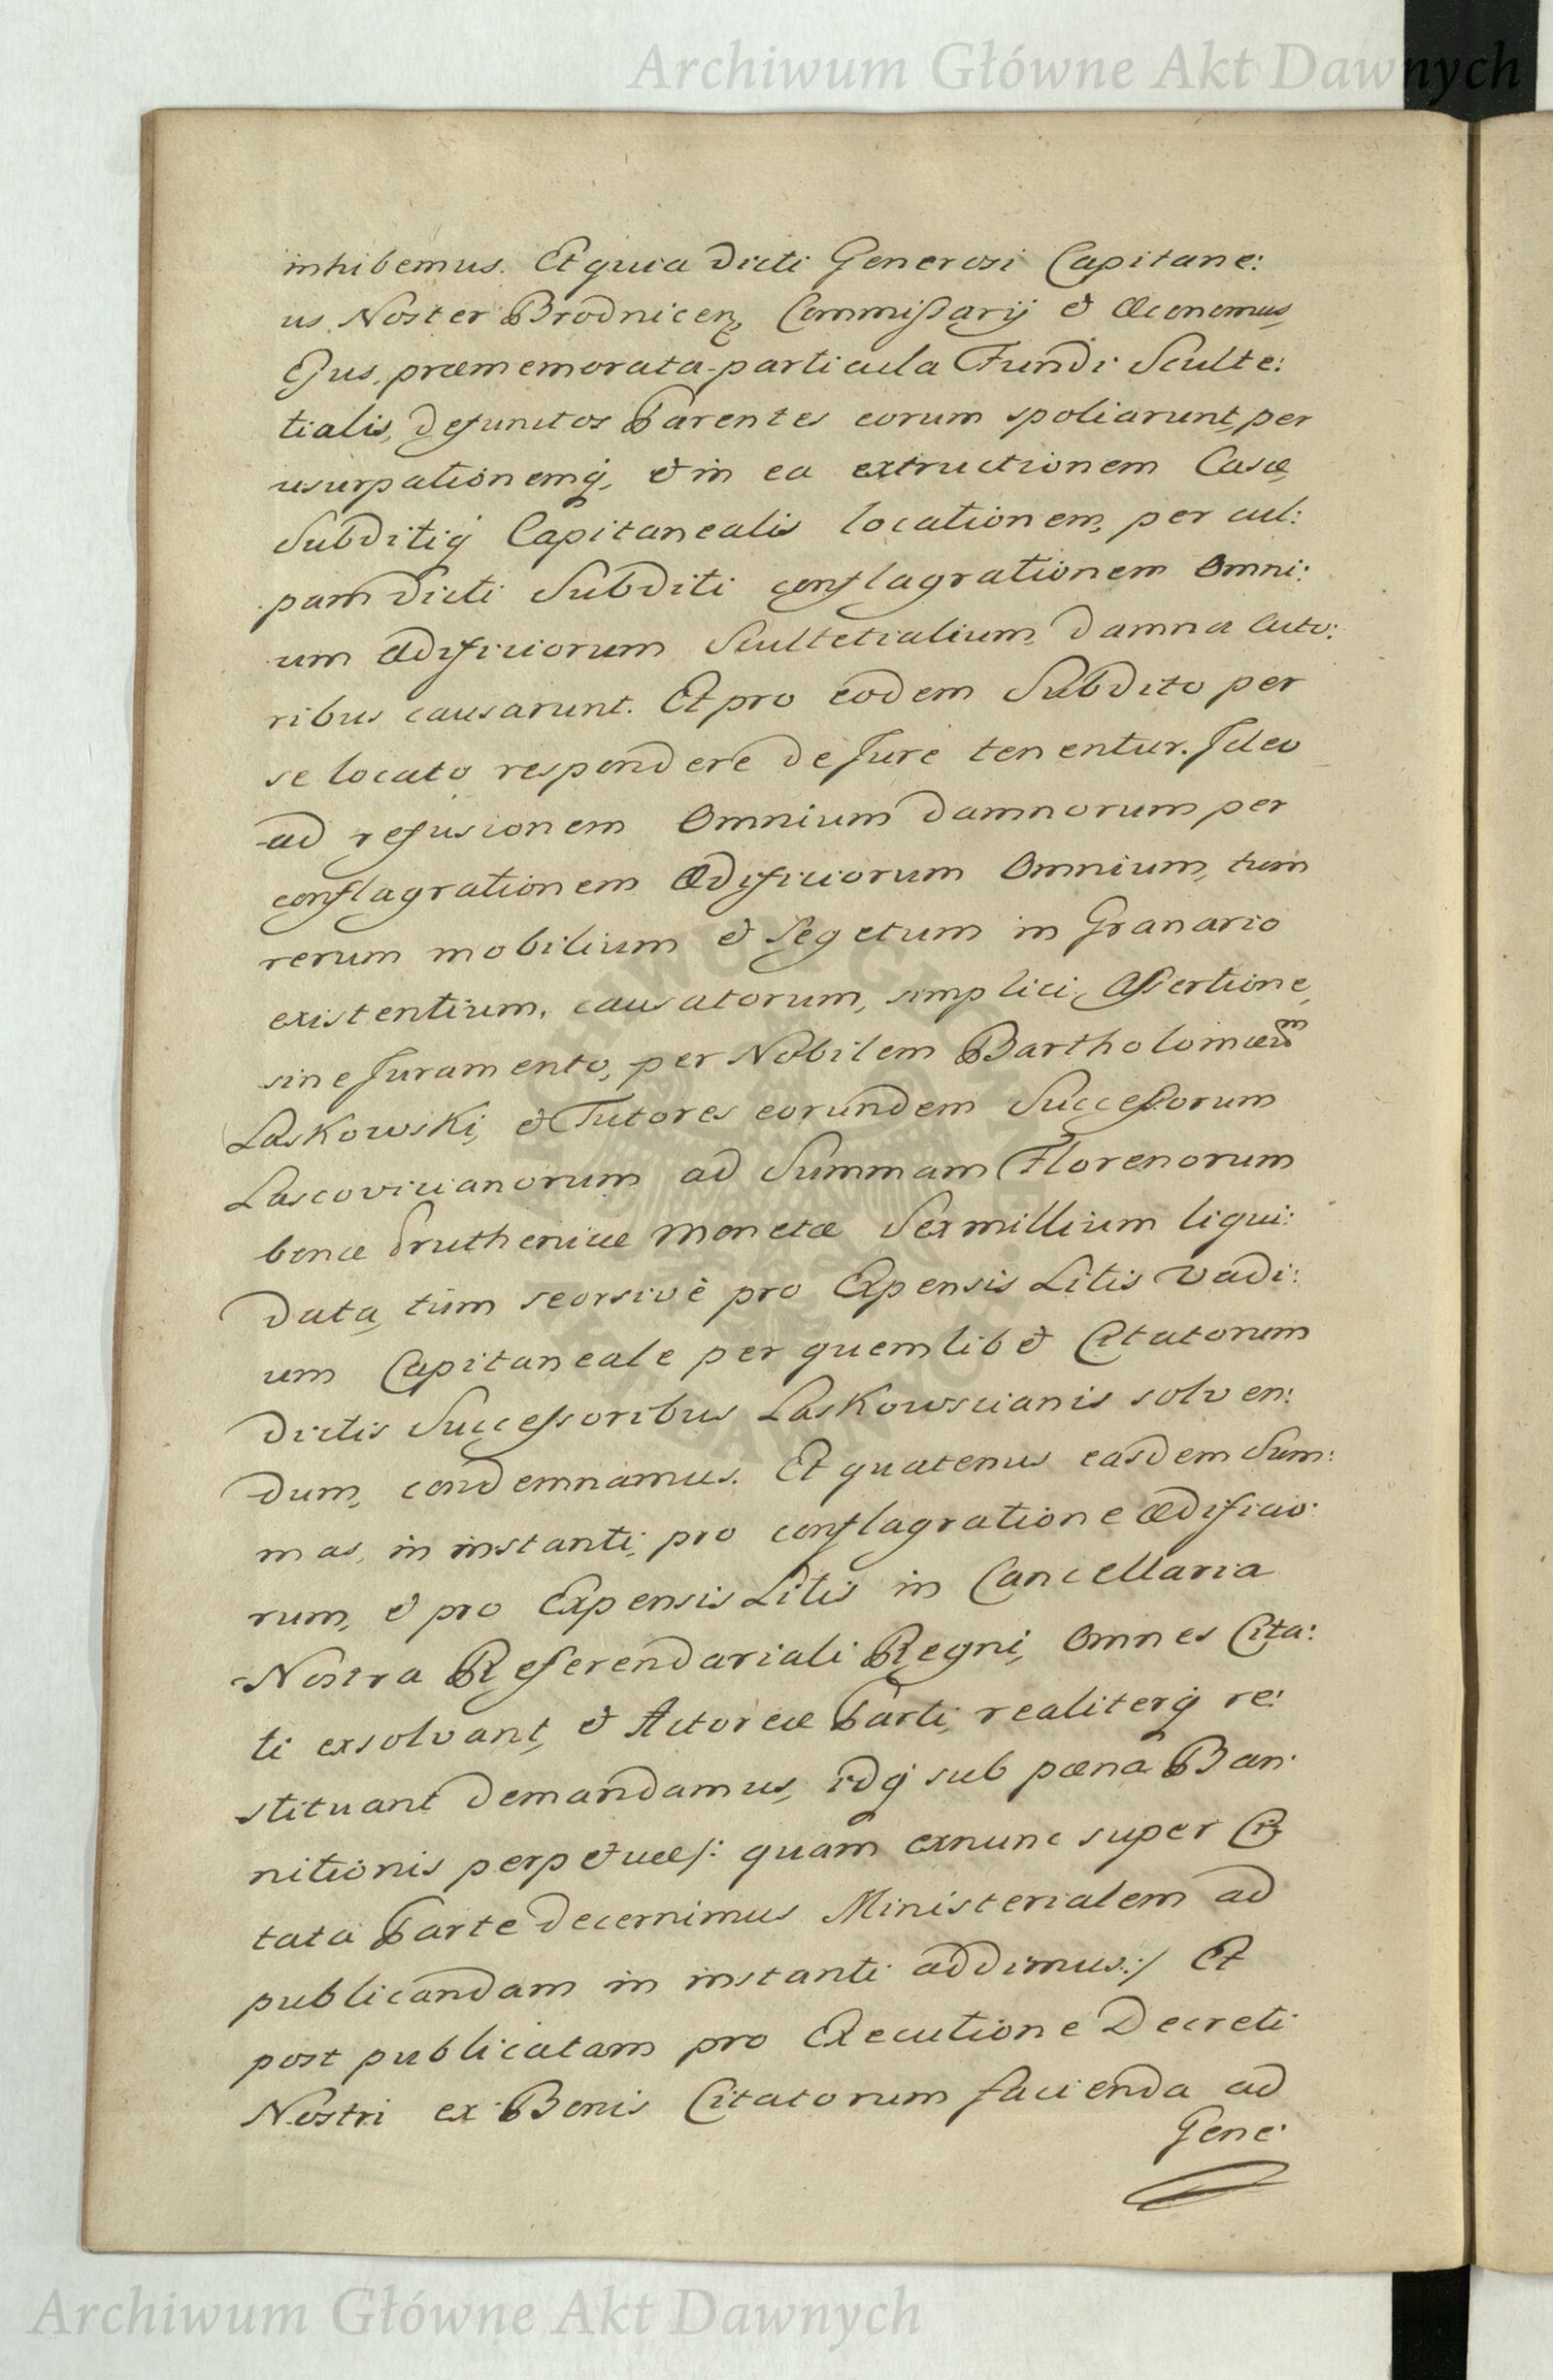 Archiwum Główne Akt Dawnych
inhibemus. Et quia dicti Generosi Capitane:
us Noster Brodnicen, Commissarij & Œconomus
Ejus, præmemorata particula Fundi Sculte:
tialis, defunctos Parentes eorum spoliarunt, per
usurpationemq, & in ea extructionem Casæ,
Subditiq Capitanealis locationem, per cul:
pam dicti Subditi conflagrationem Omni:
um Ædificiorum Scultetialium, damna Acto:
ribus causarunt. Et pro eodem Subdito per
se locato respondere de Jure tenentur. Ideo
ad refusionem Omnium damnorum per
conflagrationem Ædificiorum Omnium, tum
rerum mobilium & Segetum in Granario
existentium, causatorum, simplici Assertione,
sine Juramento, per Nobilem Bartholomæum
Laskowski, & Tutores eorundem Successorum
Lascovicianorum ad Summam Florenorum
bonæ Pruthenicæ Monetæ Sex millium liqui:
data, tum seorsivè pro Expensis Litis Vadi:
um Capitaneale per quemlibet Citatorum
dictis Successoribus Laskowscianis solven:
dum, condemnamus. Et quatenus easdem Sum:
mas, in instanti, pro conflagratione ædificio:
rum, & pro Expensis Litis in Cancellaria
Nostra Referendariali Regni, Omnes Cita:
ti exsolvant, & Actoreæ Parti, realiterq re:
stituant demandamus, idq sub pœna Ban:
nitionis perpetuæ /: quam exnunc super Ci:
tata Parte decernimus Ministerialem ad
publicandam in instanti addimus :/ Et
post publicatam pro Executione Decreti
Nostri ex Bonis Citatorum facienda ad
Gene:
Archiwum Główne Akt Dawnych